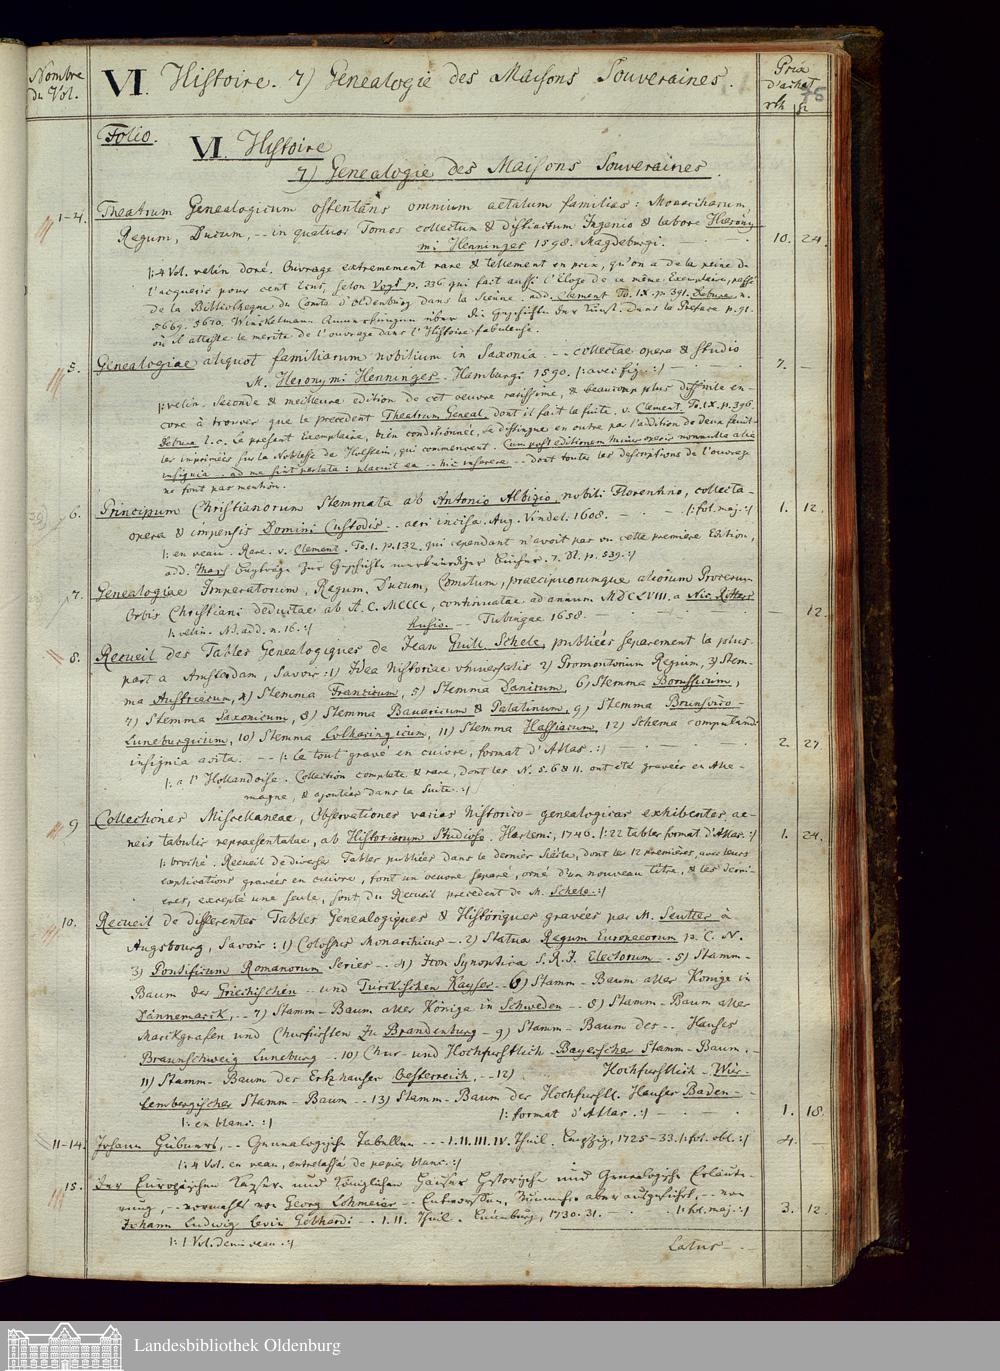 Nombre du Vol.
VI. Histoire. 7) Genealogie des Maisons Souveraines.
Prix d'achat
75
rth gr
Folio.
VI. Histoire
7) Genealogie des Maisons Souveraines.
1-4. Theatrum Genealogicum ostentans omnium aetatum familias: Monarcharum,
Regum, Ducum, -- in quatuor Tomos collectum & distinctum Ingenio & labore Hierony-
mi Henninges 1598. Magdeburgi. 10. 24.
/: 4 Vol. velin doré. Ouvrage extremement rare & tellement en prix, qu'on a de la peine de
l'acquerir pour cent Ecus, selon Vogt p. 336 qui fait aussi l'Eloge de ce même Exemplaire, passé
de la Bibliotheque du Comte d'Oldenburg dans la Sienne. add. Clement To. IX. p. 391. Debure n.
5669. 5670. Winckelmann Anmerckungen über die Geschichte der Kunst. dans la Preface p. 91.
où il atteste le merite de l'ouvrage dans l'Histoire fabuleuse.
5. Genealogiae aliquot familiarum nobilium in Saxonia -- collectae opera & studio
M. Hieronymi Henninges. Hamburgi 1590. /: avec fig. :/ 7. —
/: velin. Seconde & meilleure edition de cet oeuvre rarissime, & beaucoup plus difficile en-
core à trouver que le precedent Theatrum Geneal. dont il fait la suite. v. Clement To. IX. p. 396.
Debure l. c. Le present Exemplaire, bien conditionnée, se distingue en outre par l'addition de deux feuil-
les imprimées sur la Noblesse de Holstein, qui commencent. Cum post editionem huius operis nonnulla alia
insignia -- ad me sint perlata: placuit ea -- hic inserere -- dont toutes les descriptions de l'ouvrage
ne font pas mention.
6. Principum Christianorum Stemmata ab Antonio Albizio nobili Florentino, collecta-
opera & impensis Domini Custodis -- aeri incisa. Aug. Vindel. 1608. /: fol. maj. :/ 1. 12.
/: en veau. Rare. v. Clement. To. 1. p. 132. qui cependant n'avoit pas vu cette premiere Edition,
add. Beyträge zur Geschichte merkwürdiger Bücher. 7. St. p. 539. :/
7. Genealogiae Imperatorum, Regum, Ducum, Comitum, praecipuorumque aliorum Procerum
Orbis Christiani deductae ab A. C. MCCCC, continuatae ad annum MDCLVIII. a Nic. Ritters
husio. -- Tubingae 1658. — 12.
/: velin. Nd. add. n. 16. :/
8. Recueil des Tables Genealogiques de Jean Guil. Schele, publiées separement la plus-
part a Amsterdam, Savoir: 1) Idea Historiae universalis 2) Promontorium Regium, 3) Stem-
ma Austriacum, 4) Stemma Francicum, 5) Stemma Danicum, 6) Stemma Borussicum,
7) Stemma Saxonicum, 8) Stemma Bavaricum & Palatinum, 9) Stemma Brunsvico-
Luneburgicum, 10) Stemma Lotharingicum, 11) Stemma Hassiacum, 12) Schema computandi
insignia avita. -- /: le tout gravé en cuivre, format d'Atlas. :/ 2. 27.
/: a l'Hollandoise. Collection complete & rare, dont les N. 5. 6 & 11. ont été gravées en Alle-
magne, & ajoutées dans la Suite. :/
9 Collectiones Miscellaneae, Observationes varias historico-genealogicas exhibentes, ae-
neis tabulis repraesentatae, ab Historiarum Studioso. Harlemi, 1746. /: 22 tables format d'Atlas. :/ 1. 24.
/: broché. Recueil de diverses Tables publiées dans le dernier Siecle, dont les 12 premieres, avec leurs
explications gravées en cuivre, font un oeuvre separé, orné d'un nouveau titre, & les derni-
eres, excepté une seule, sont du Recueil precedent de M. Schele. :/
10. Recueil de differentes Tables Genealogiques & Historiques gravées par M. Seutter à
Augsbourg, Savoir: 1) Colossus Monarchicus -- 2) Statua Regum Europaeorum p. C. N.
3) Pontificum Romanorum Series -- 4) Icon Synoptica S. R. I. Electorum -- 5) Stamm-
Baum der Griechischen -- und Turckischen Kayser -- 6) Stamm-Baum aller Könige in
Dännemarck, -- 7) Stamm-Baum aller Könige in Schweden -- 8) Stamm-Baum aller
Marckgrafen und Churfürsten zu Brandenburg -- 9) Stamm-Baum des -- Hauses
Braunschweig Luneburg -- 10) Chur- und Hochfurstlich-Bayerscher Stamm-Baum. --
11) Stamm-Baum der Ertzhauser Oesterreich. -- 12) Hochfurstlich-Wür-
tembergischer Stamm-Baum -- 13) Stamm-Baum der Hochfurstl. Hauser Baden --
/: en blanc. :/ /: format d'Atlas. :/ 1. 18.
11-14. Johann Hübners, -- Genealogische Tabellen --- I. II. III. IV. Theil. Leipzig, 1725-33. /: fol. obl. :/ 4. —
/: 4 Vol. en veau, entrelassé de papier blanc. :/
15. Der Europäischen Kayser- und Königlichen Häuser Historische und Genealogische Erläute-
rung, -- vormahls von Georg Lohmeier -- Entworffen, Nunmehr aber ausgeführt, -- von
Johann Ludwig Levin Gebhardi -- I. II. Theil. Lüneburg, 1730. 31. /: fol. maj. :/ 3. 12.
/: 1 Vol. demi veau. :/
Latus --
Landesbibliothek Oldenburg